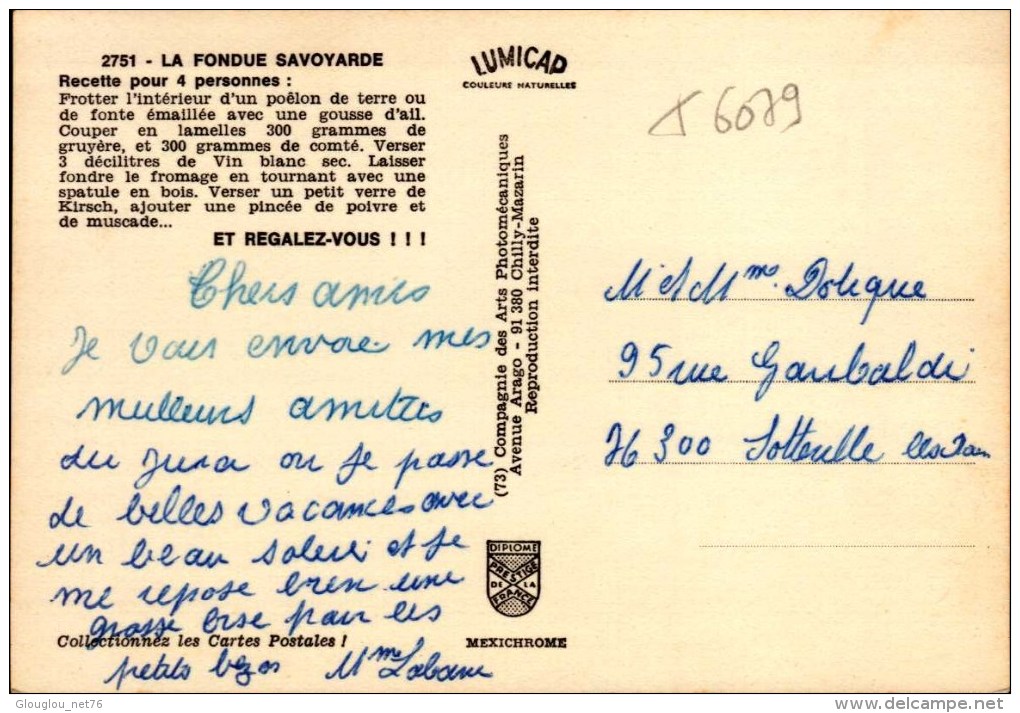 2751 - LA FONDUE SAVOYARDE
Recette pour 4 personnes :
Frotter l'intérieur d'un poêlon de terre ou
de fonte émaillée avec une gousse d'ail.
Couper en lamelles 300 grammes de
gruyère, et 300 grammes de comté. Verser
3 décilitres de Vin blanc sec. Laisser
fondre le fromage en tournant avec une
spatule en bois. Verser un petit verre de
Kirsch, ajouter une pincée de poivre et
de muscade...
ET REGALEZ-VOUS ! ! !
Chers amis
Je vous envoie mes
meilleurs amitiés
du Jura ou je passe
de belles vacances avec
un beau soleil et je
me repose bien une
grosse bise pour les
petits
Mme
Collectionnez les Cartes Postales !
LUMICAP
COULEURS NATURELLES
(73) Compagnie des Arts Photomécaniques
Avenue Arago - 91 380 Chilly-Mazarin
Reproduction interdite
DIPLOME
PRESTIGE
DE LA
FRANCE
MEXICHROME
6079
M et Mme
95 rue Garibaldi
76 300 Sotteville les
Glouglou_net76
delcampe.net